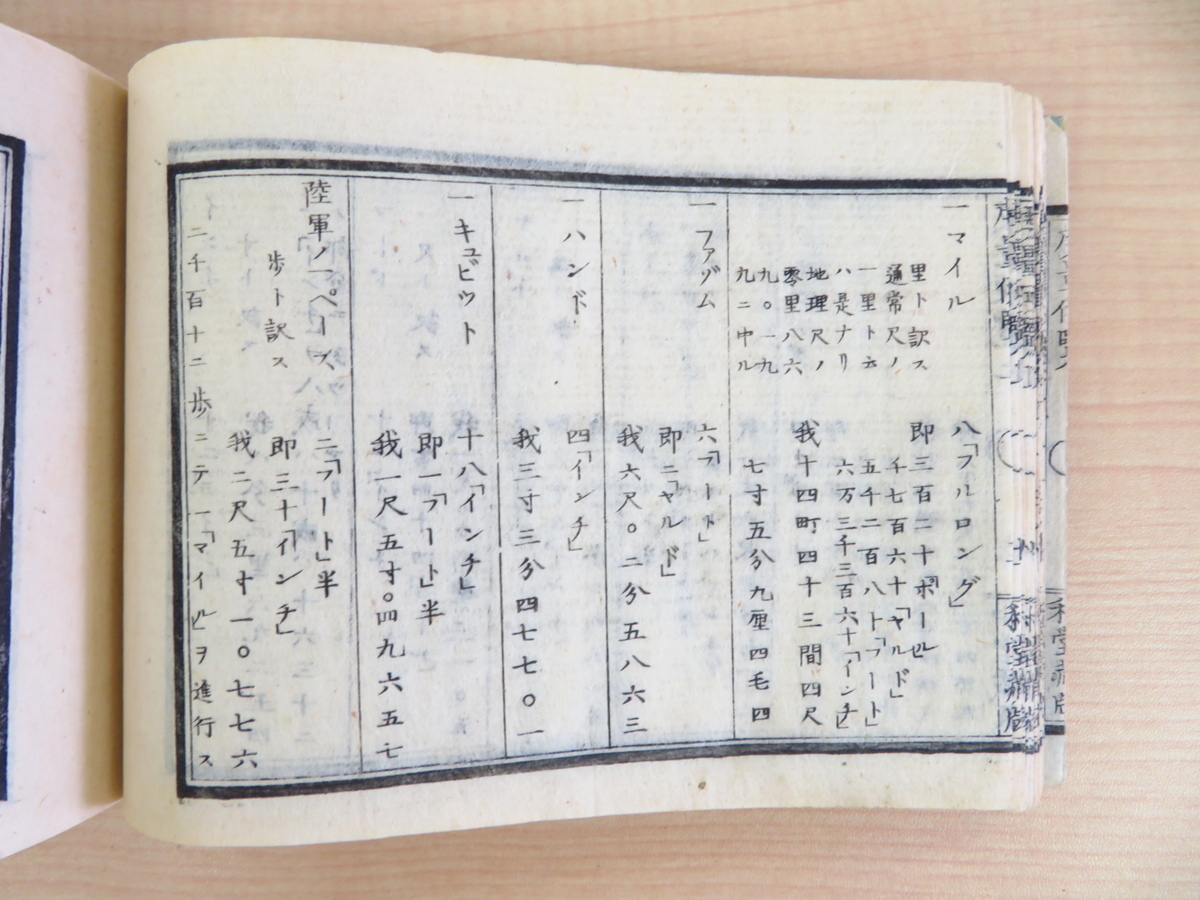 一マイル
里ト訳ス
通常尺ノ
一里ト云
ハ是ナリ
地理尺ノ
零里八六
九〇一九
九二中ル
八「フルロング」
即三百二十「ポール」
千七百六十「ヤルド」
五千二百八十「フート」
六万三千三百六十「インチ」
我十四町四十三間四尺
七寸五分九厘四毛四
一ファゾム
六「フート」
即二「ヤルド」
我六尺〇二分五八六三
一ハンド
四「インチ」
我三寸三分四七七〇一
一キュビット
十八「インチ」
即一「フート」半
我一尺五寸〇四九六五七
陸軍ノ一ペース
歩ト訳ス
二「フート」半
即三十「インチ」
我二尺五寸一〇七七六
二千百十二歩ニテ一「マイル」ヲ進行ス